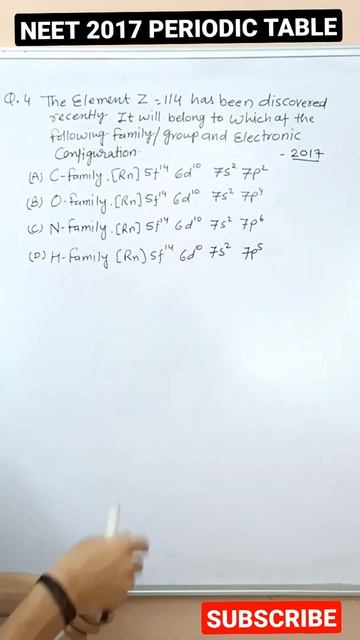 NEET 2017 PERIODIC TABLE
Q.4 The Element Z = 114 has been discovered
recently. It will belong to which of the
following family/group and Electronic
Configuration. - 2017
(A) C-family. [Rn] 5f¹⁴ 6d¹⁰ 7s² 7p²
(B) O-family. [Rn] 5f¹⁴ 6d¹⁰ 7s² 7p⁴
(C) N-family. [Rn] 5f¹⁴ 6d¹⁰ 7s² 7p⁶
(D) H-family [Rn] 5f¹⁴ 6d¹⁰ 7s² 7p⁵
SUBSCRIBE